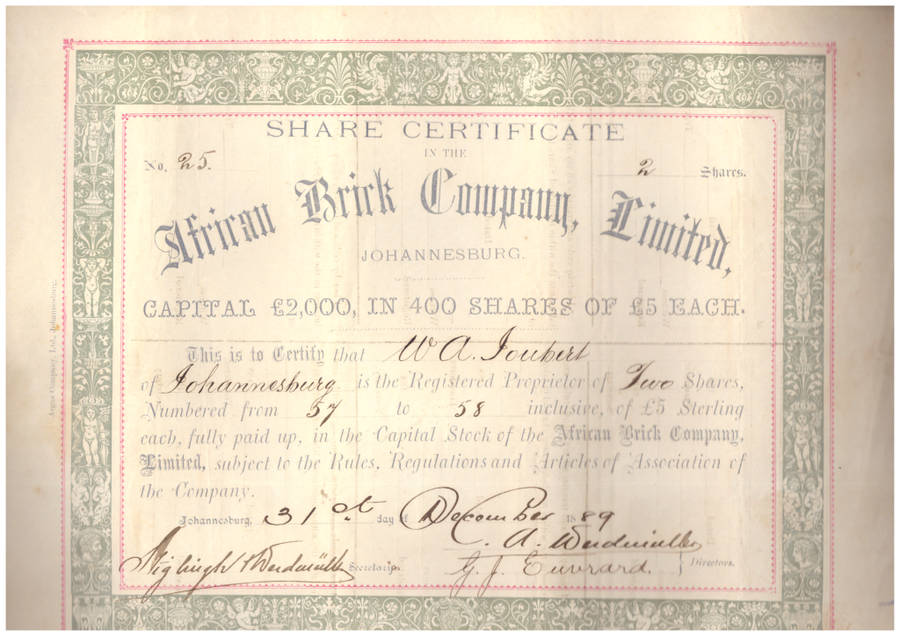 SHARE CERTIFICATE
IN THE
No. 25. 2 Shares.
African Brick Company, Limited,
JOHANNESBURG.
CAPITAL £2,000, IN 400 SHARES OF £5 EACH.
This is to Certify that W A. Joubert
of Johannesburg is the Registered Proprietor of Two Shares,
Numbered from 57 to 58 inclusive, of £5 Sterling
each, fully paid up, in the Capital Stock of the African Brick Company,
Limited, subject to the Rules, Regulations and Articles of Association of
the Company.
Johannesburg, 31st day of December 1889
C. A. Werdmüller
Werdmüller Secretaries. G. J. Euvrard. } Directors.
Argus Company, Ltd., Johannesburg.